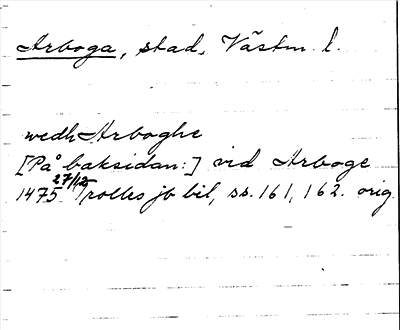 Arboga, stad, Västm. l.
wedh Arboghe
[På baksidan:] vid Arboge
1475 27/12 Trolles jb bil, ss. 161, 162. orig.